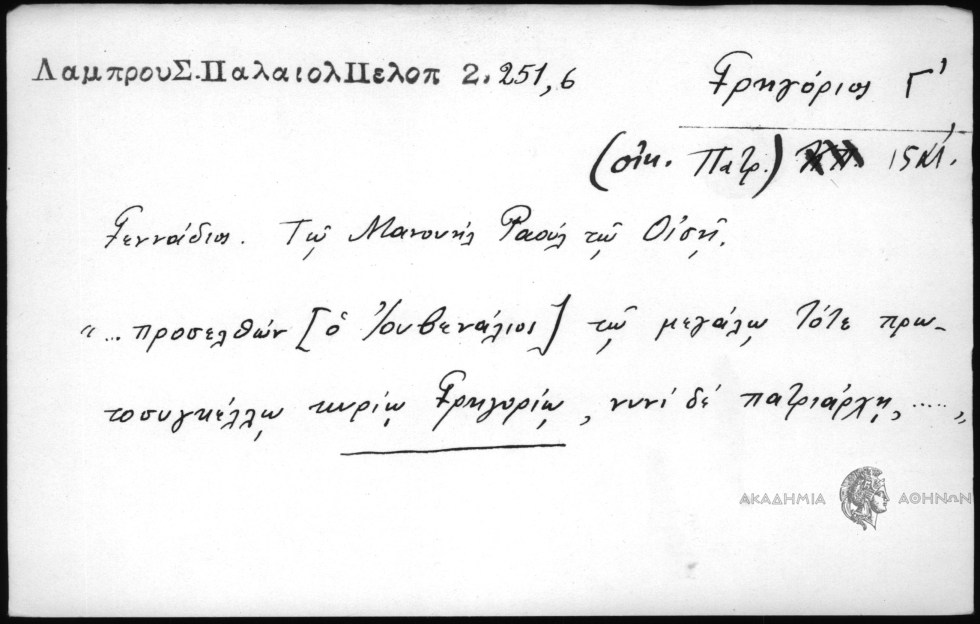 ΛαμπρουΣ.ΠαλαιολΠελοπ 2.251,6
Γρηγόριος Γ'
(οἰκ. Πατρ.) 15
Γεννάδιος. Τῷ Μανουὴλ Ραοὺλ τῷ Οἰσῇ.
"... προσελθών [ὁ Ἰουβενάλιος] τῷ μεγάλῳ τότε πρω-
τοσυγκέλλῳ κυρίῳ Γρηγορίῳ, νυνί δέ πατριάρχῃ, ....."
ΑΚΑΔΗΜΙΑ ΑΘΗΝΩΝ